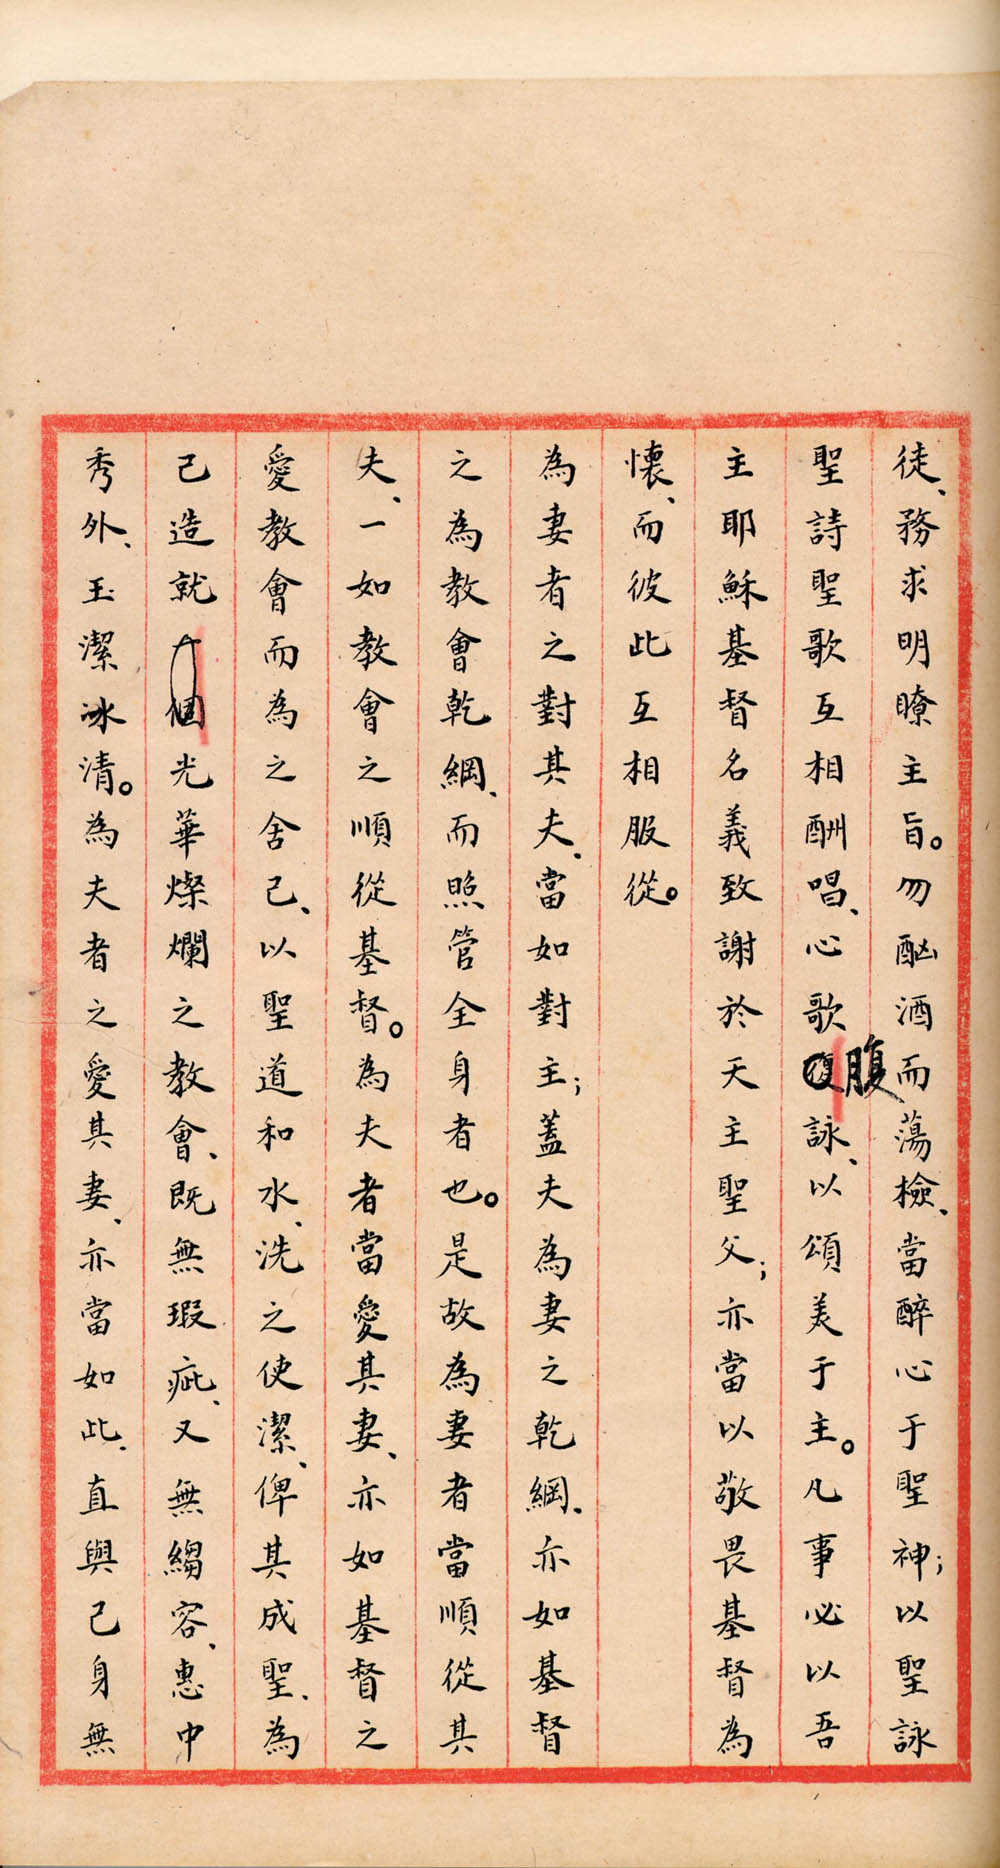 徒、務求明瞭主旨。勿酗酒而蕩檢、當醉心于聖神；以聖詠
聖詩聖歌互相酬唱、心歌腹詠、以頌美于主。凡事必以吾
主耶穌基督名義致謝於天主聖父；亦當以敬畏基督為
懷、而彼此互相服從。
為妻者之對其夫、當如對主；蓋夫為妻之乾綱、亦如基督
之為教會乾綱、而照管全身者也。是故為妻者當順從其
夫、一如教會之順從基督。為夫者當愛其妻、亦如基督之
愛教會而為之舍己、以聖道和水、洗之使潔、俾其成聖、為
己造就光華燦爛之教會、既無瑕疵、又無縐容、惠中
秀外、玉潔冰清。為夫者之愛其妻、亦當如此、直與己身無